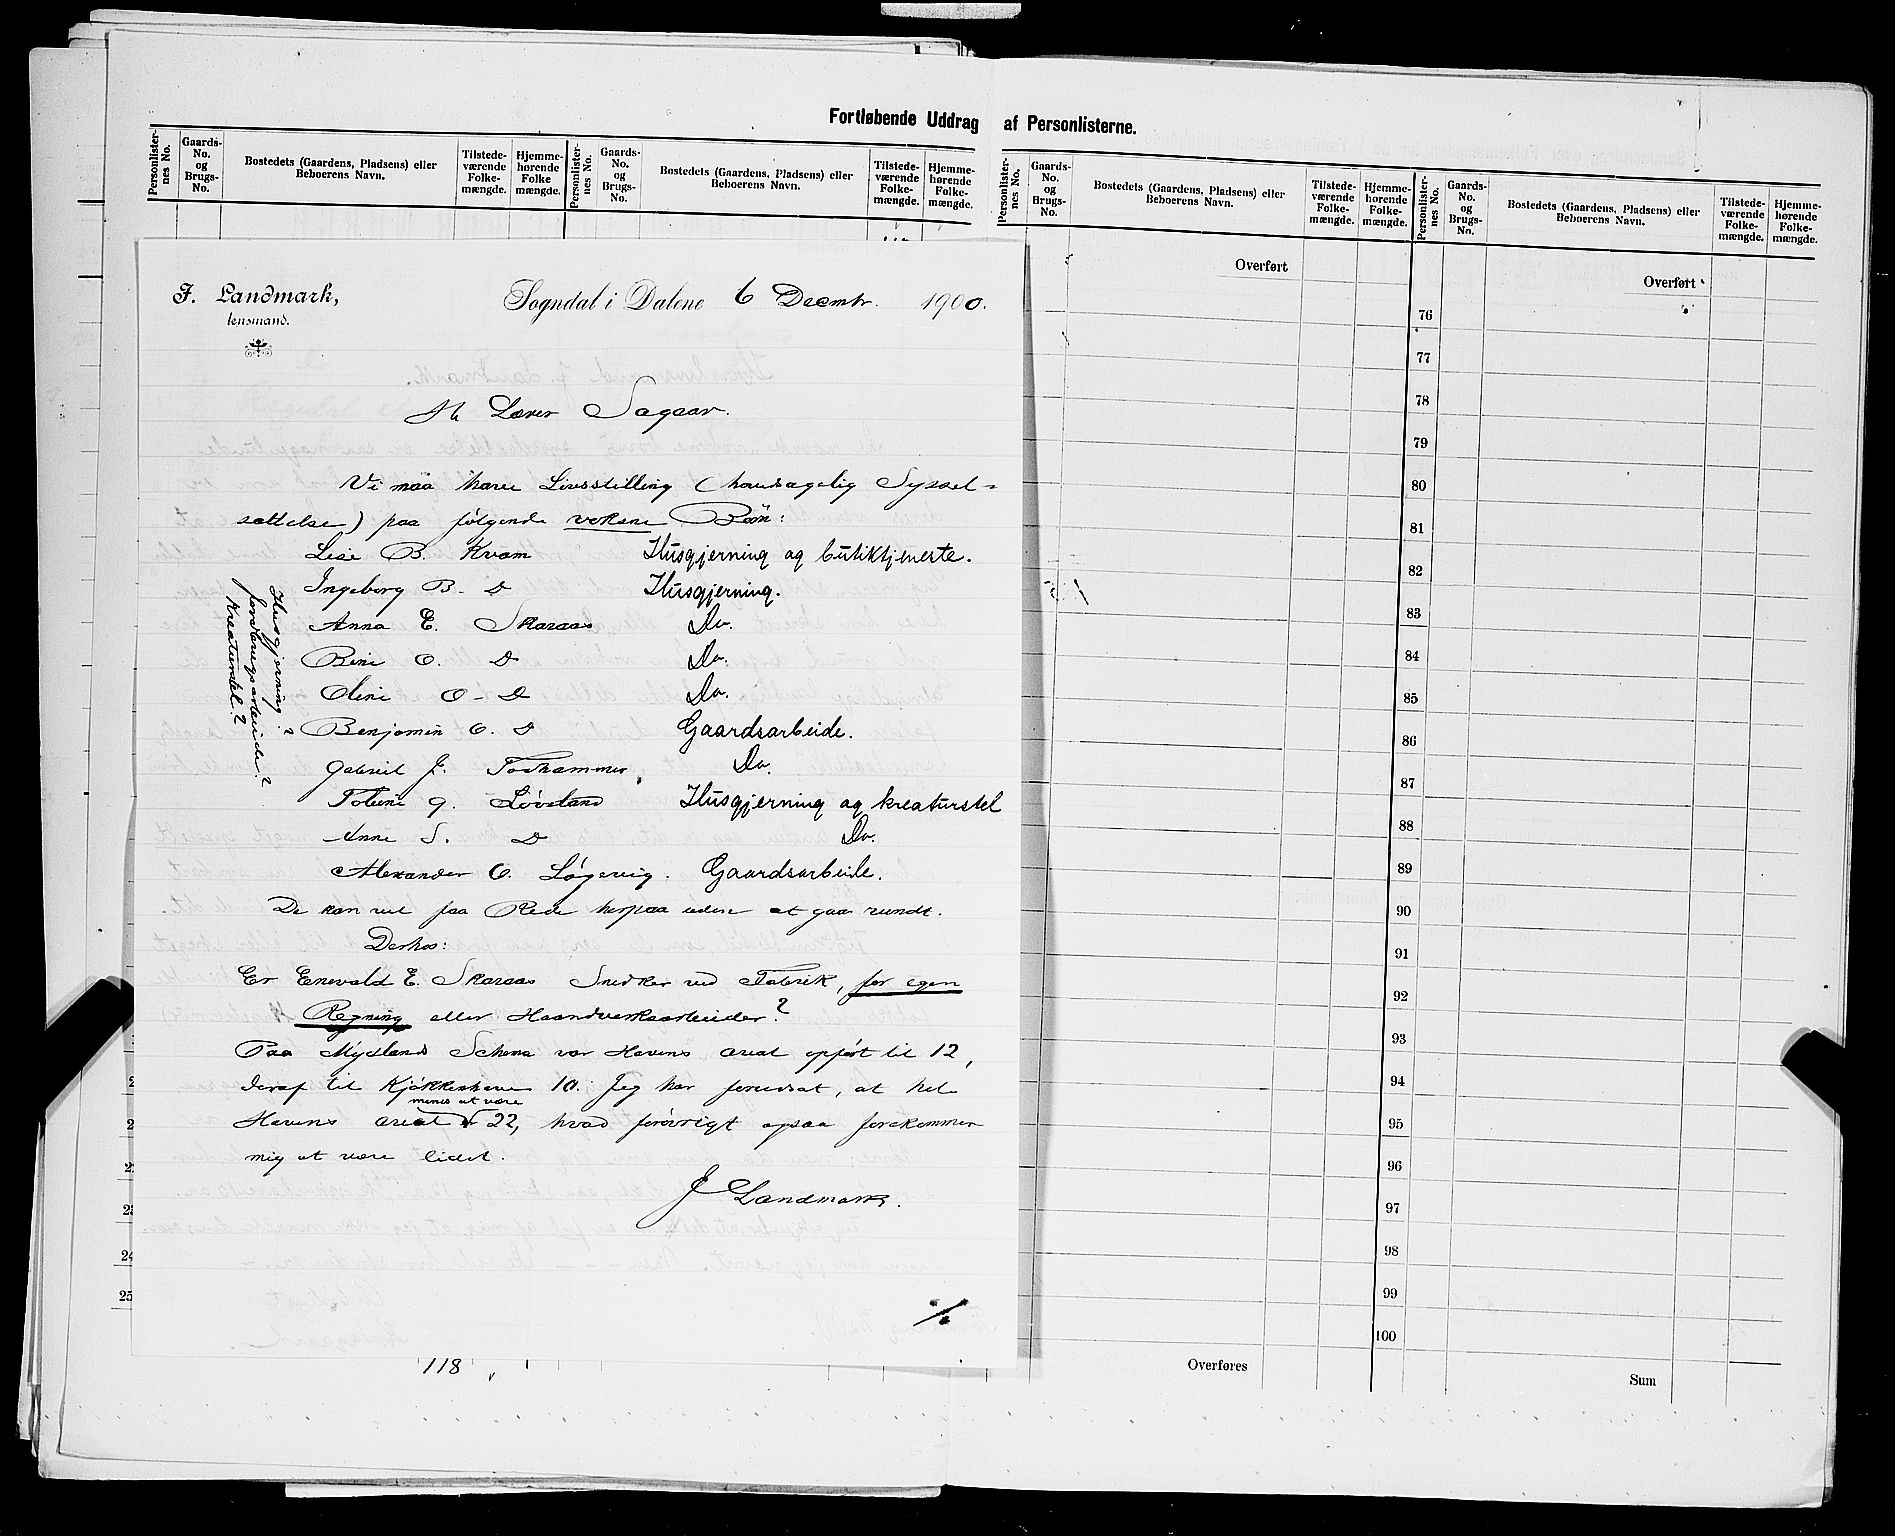 Fortløbende Uddrag af Personlisterne.
Personlisternes No.
Gaards-No. og Brugs-No.
Bostedets (Gaardens, Pladsens) eller Beboerens Navn.
Tilstedeværende Folkemængde.
Hjemmehørende Folke mængde.
Personlisternes No.
Gaards-No. og Brugs-No.
Bostedets (Gaardens, Pladsens) eller Beboerens Navn.
Tilstedeværende Folkemængde.
Hjemmehørende Folkemængde.
Personlisternes No.
Gaards-No. og Brugs-No.
Bostedets (Gaardens, Pladsens) eller Beboerens Navn.
Tilstedeværende Folkemængde.
Hjemmehørende Folkemængde.
Personlisternes No.
Gaards-No. og Brugs-No.
Bostedets (Gaardens, Pladsens) eller Beboerens Navn.
Tilstedeværende Folkemængde.
Hjemmehørende Folkemængde.
J. Landmark,
lensmand.
Sogndal i Dalene 6 Decmbr. 1900.
Hr Lærer Sagaar.
Vi maa have Livsstilling (hovedsagelig Syssel=
sættelse) paa følgende voksne Børn:
Lise B. Kvam Husgjerning og butiktjeneste.
Ingeborg B. D Husgjerning.
Anna E. Skaraas Do.
Bine O. D Do.
Oline O- D Do.
Benjamin O. D Gaardsarbeide.
Gabriel J. Do.
Toline G. Løvland Husgjerning og kreaturstel
Anne S. D Do.
Alexander O. Løgevig. Gaardsarbeide.
Husgjerning?
jordbrugsarbeide?
Kreaturstel?
De kan vel faa Rede herpaa uden at gaa rundt.
Derhos:
Er Enevald E. Skaraas Snedker ved Fabrik, for egen
Regning eller Haandverksarbeider?
Paa Mydland Schema var Havens areal opført til 12,
deraf til Kjøkkenhave 10. Jeg har forudsat, at hele
menes at være
Havens areal 22, hvad forøvrigt ogsaa forekommer
mig at være lidet.
J Landmark.
118
24
25
Overført
Overføres
Overført
76
77
78
79
80
81
82
83
84
85
86
87
88
89
90
91
92
93
94
95
96
97
98
99
100
Sum